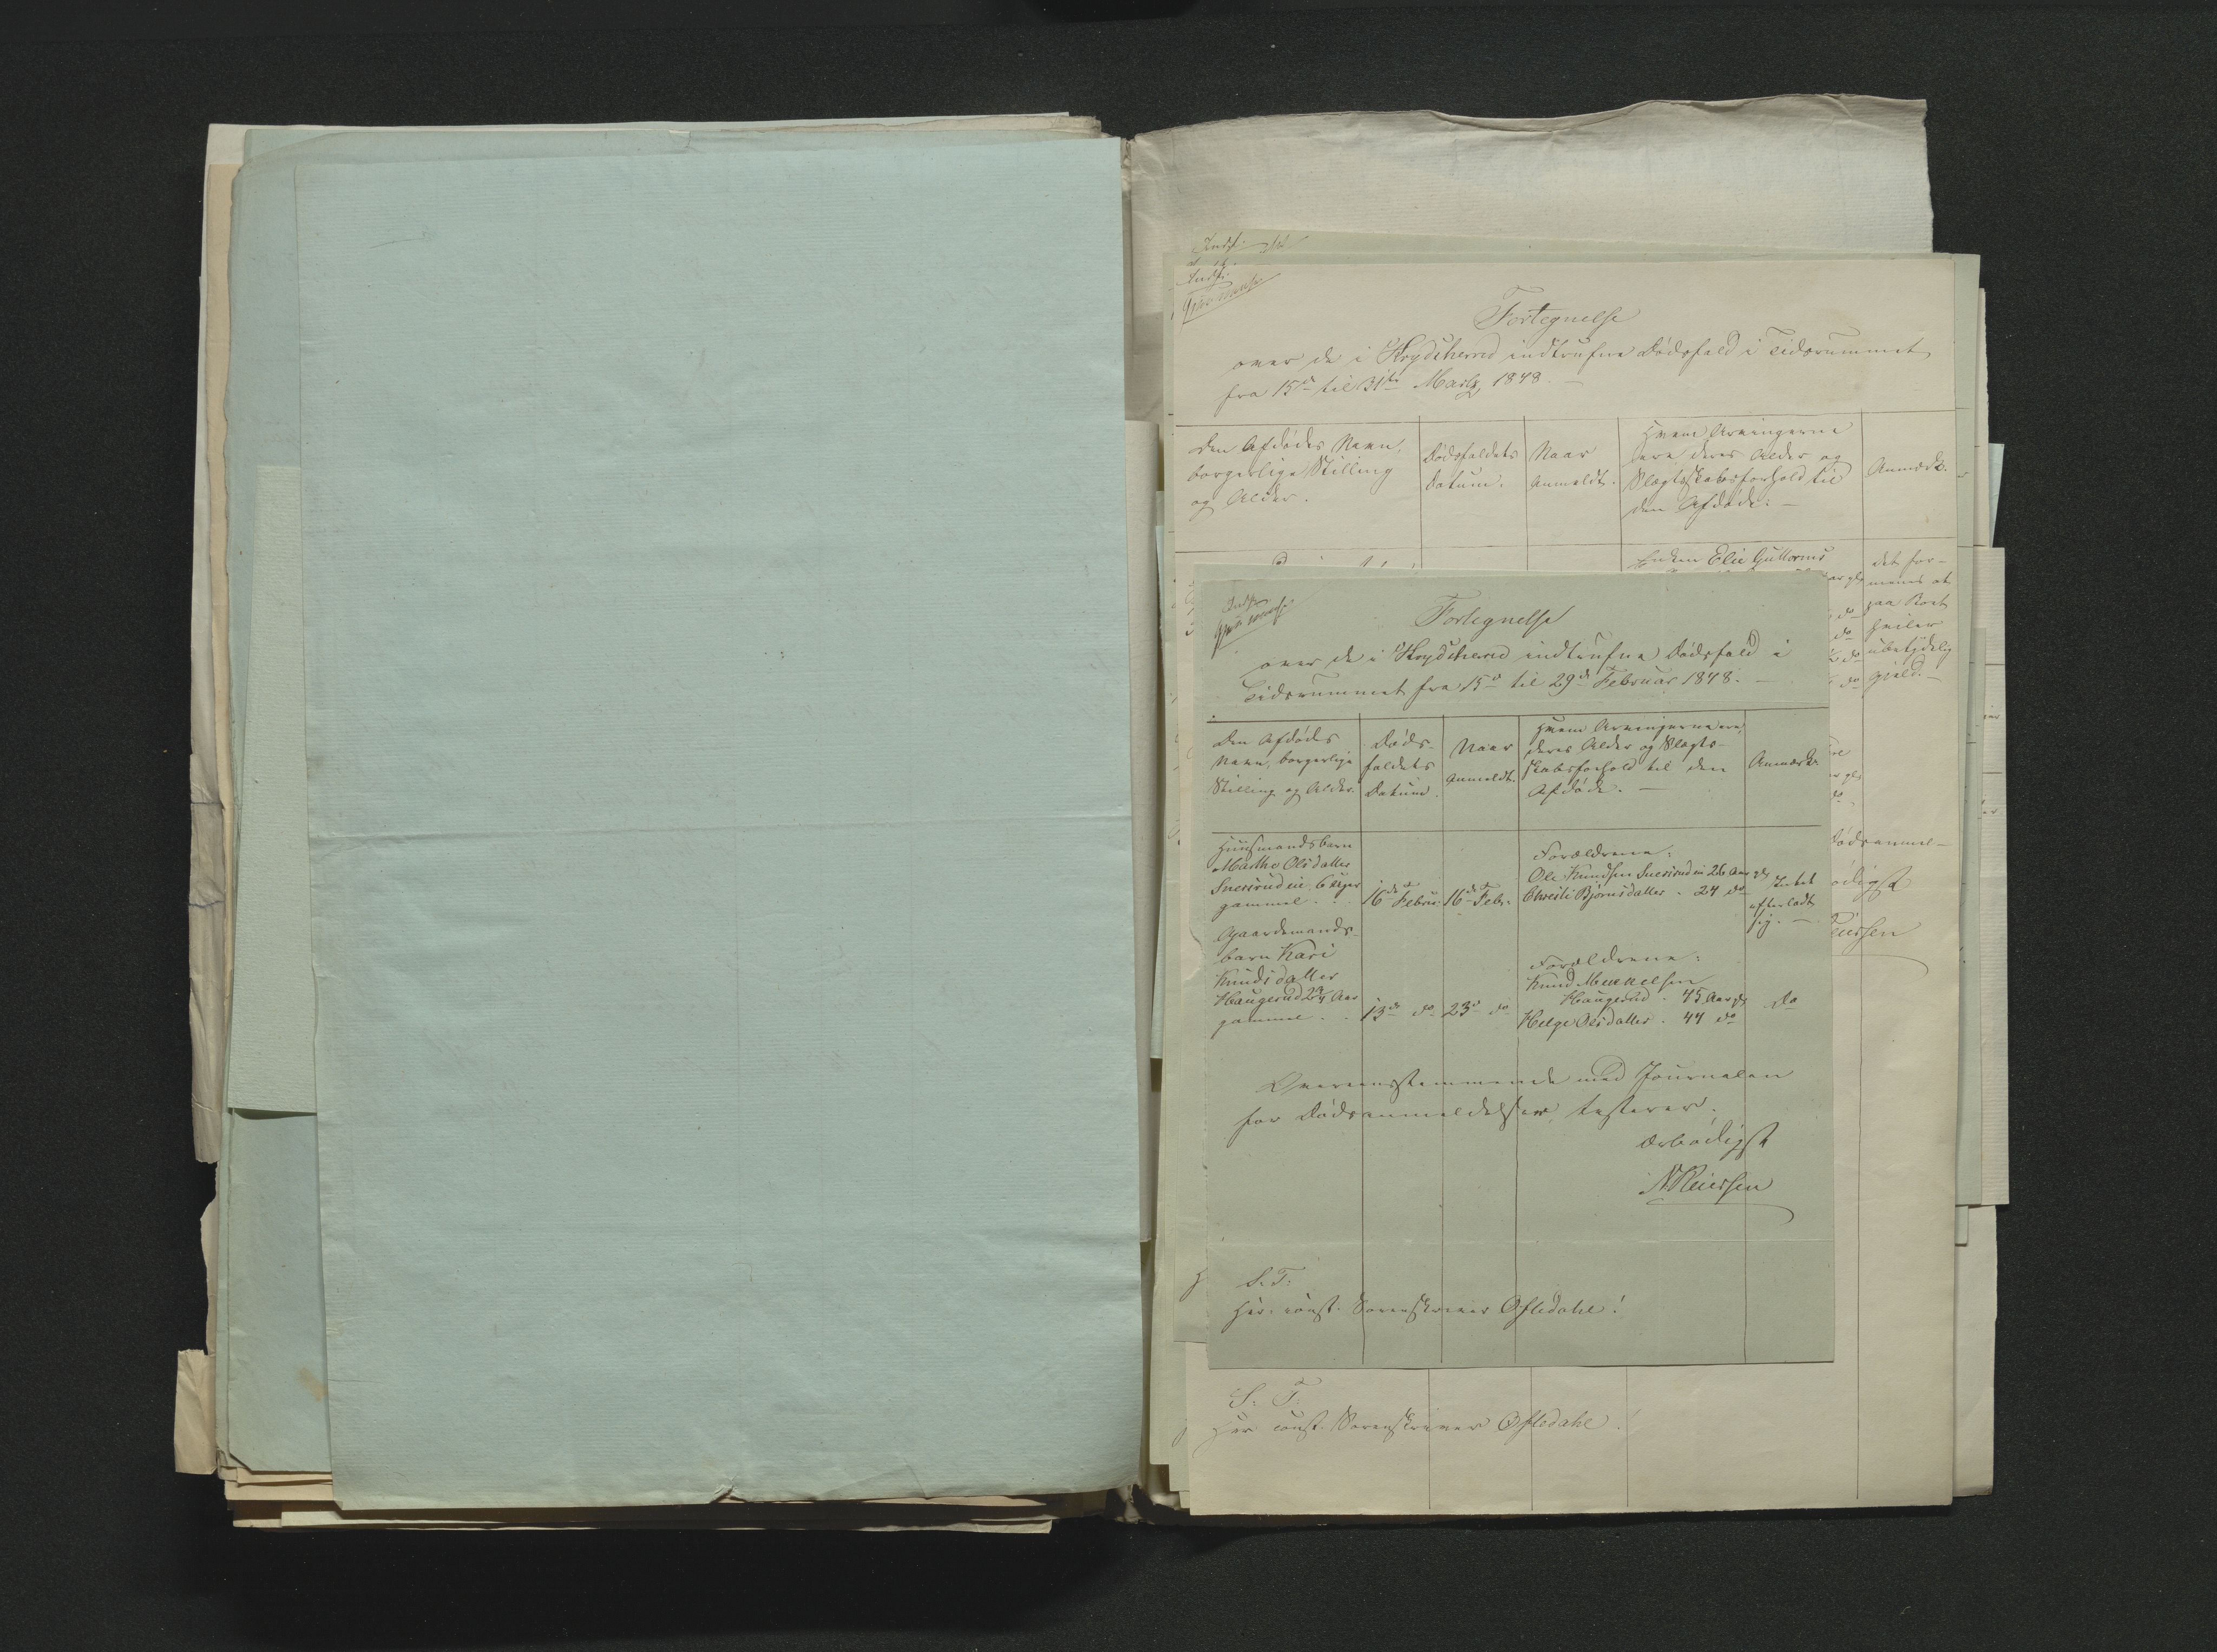 Fortegnelse
over de i Krydsherred indtrufne Dødsfald i Tidsrummet
fra 15de til 31te Marts 1848. —
Den Afdødes Navn,
borgerlige Stilling
og Alder.
Dødsfaldets
Datum.
Naar
Anmeldt.
Hvem Arvingerne
ere deres Alder og
Slægtskabsforhold til
den Afdøde. —
Anmærk.
Enken Elie Guttorms
det for-
menes at
paa Boet
hviler
ubetydelig
Gjæld. —
Fortegnelse
over de i Krydsherred indtrufne Dødsfald i
Tidsrummet fra 15de til 29de Februar 1848. —
Den Afdødes
Navn, borgerlige
Stilling og Alder.
Døds-
faldets
Datum.
Naar
Anmeldt.
Hvem Arvingerne ere,
deres Alder og Slægts-
skabsforhold til den
Afdøde. —
Anmærk.
Huusmandsbarn
Marthe Olsdatter
Snersrudeie, 6 Uger
gammel . .
16de Februar
16de Febr.
Forældrene:
Ole Knudsen Snersrudeie 26 Aar gl.
Christi Bjørnsdatter - 24 do
Intet
efterladt
sig. —
Gaardmands-
barn Kari
Knudsdatter
Haugerud 2 3/4 Aar
gammel . .
13de do
23de do
Forældrene:
Knud Mikkelsen
Haugerud - 45 Aar gl.
Helge Olsdatter - 44 do
do
Overensstemmende med Journalen
for Dødsanmeldelser, testerer.
Ærbødigst
N Reiersen
S. T.
Hr. const. Sorenskriver Oftedahl!
S. T.
Herr const. Sorenskriver Oftedahl!